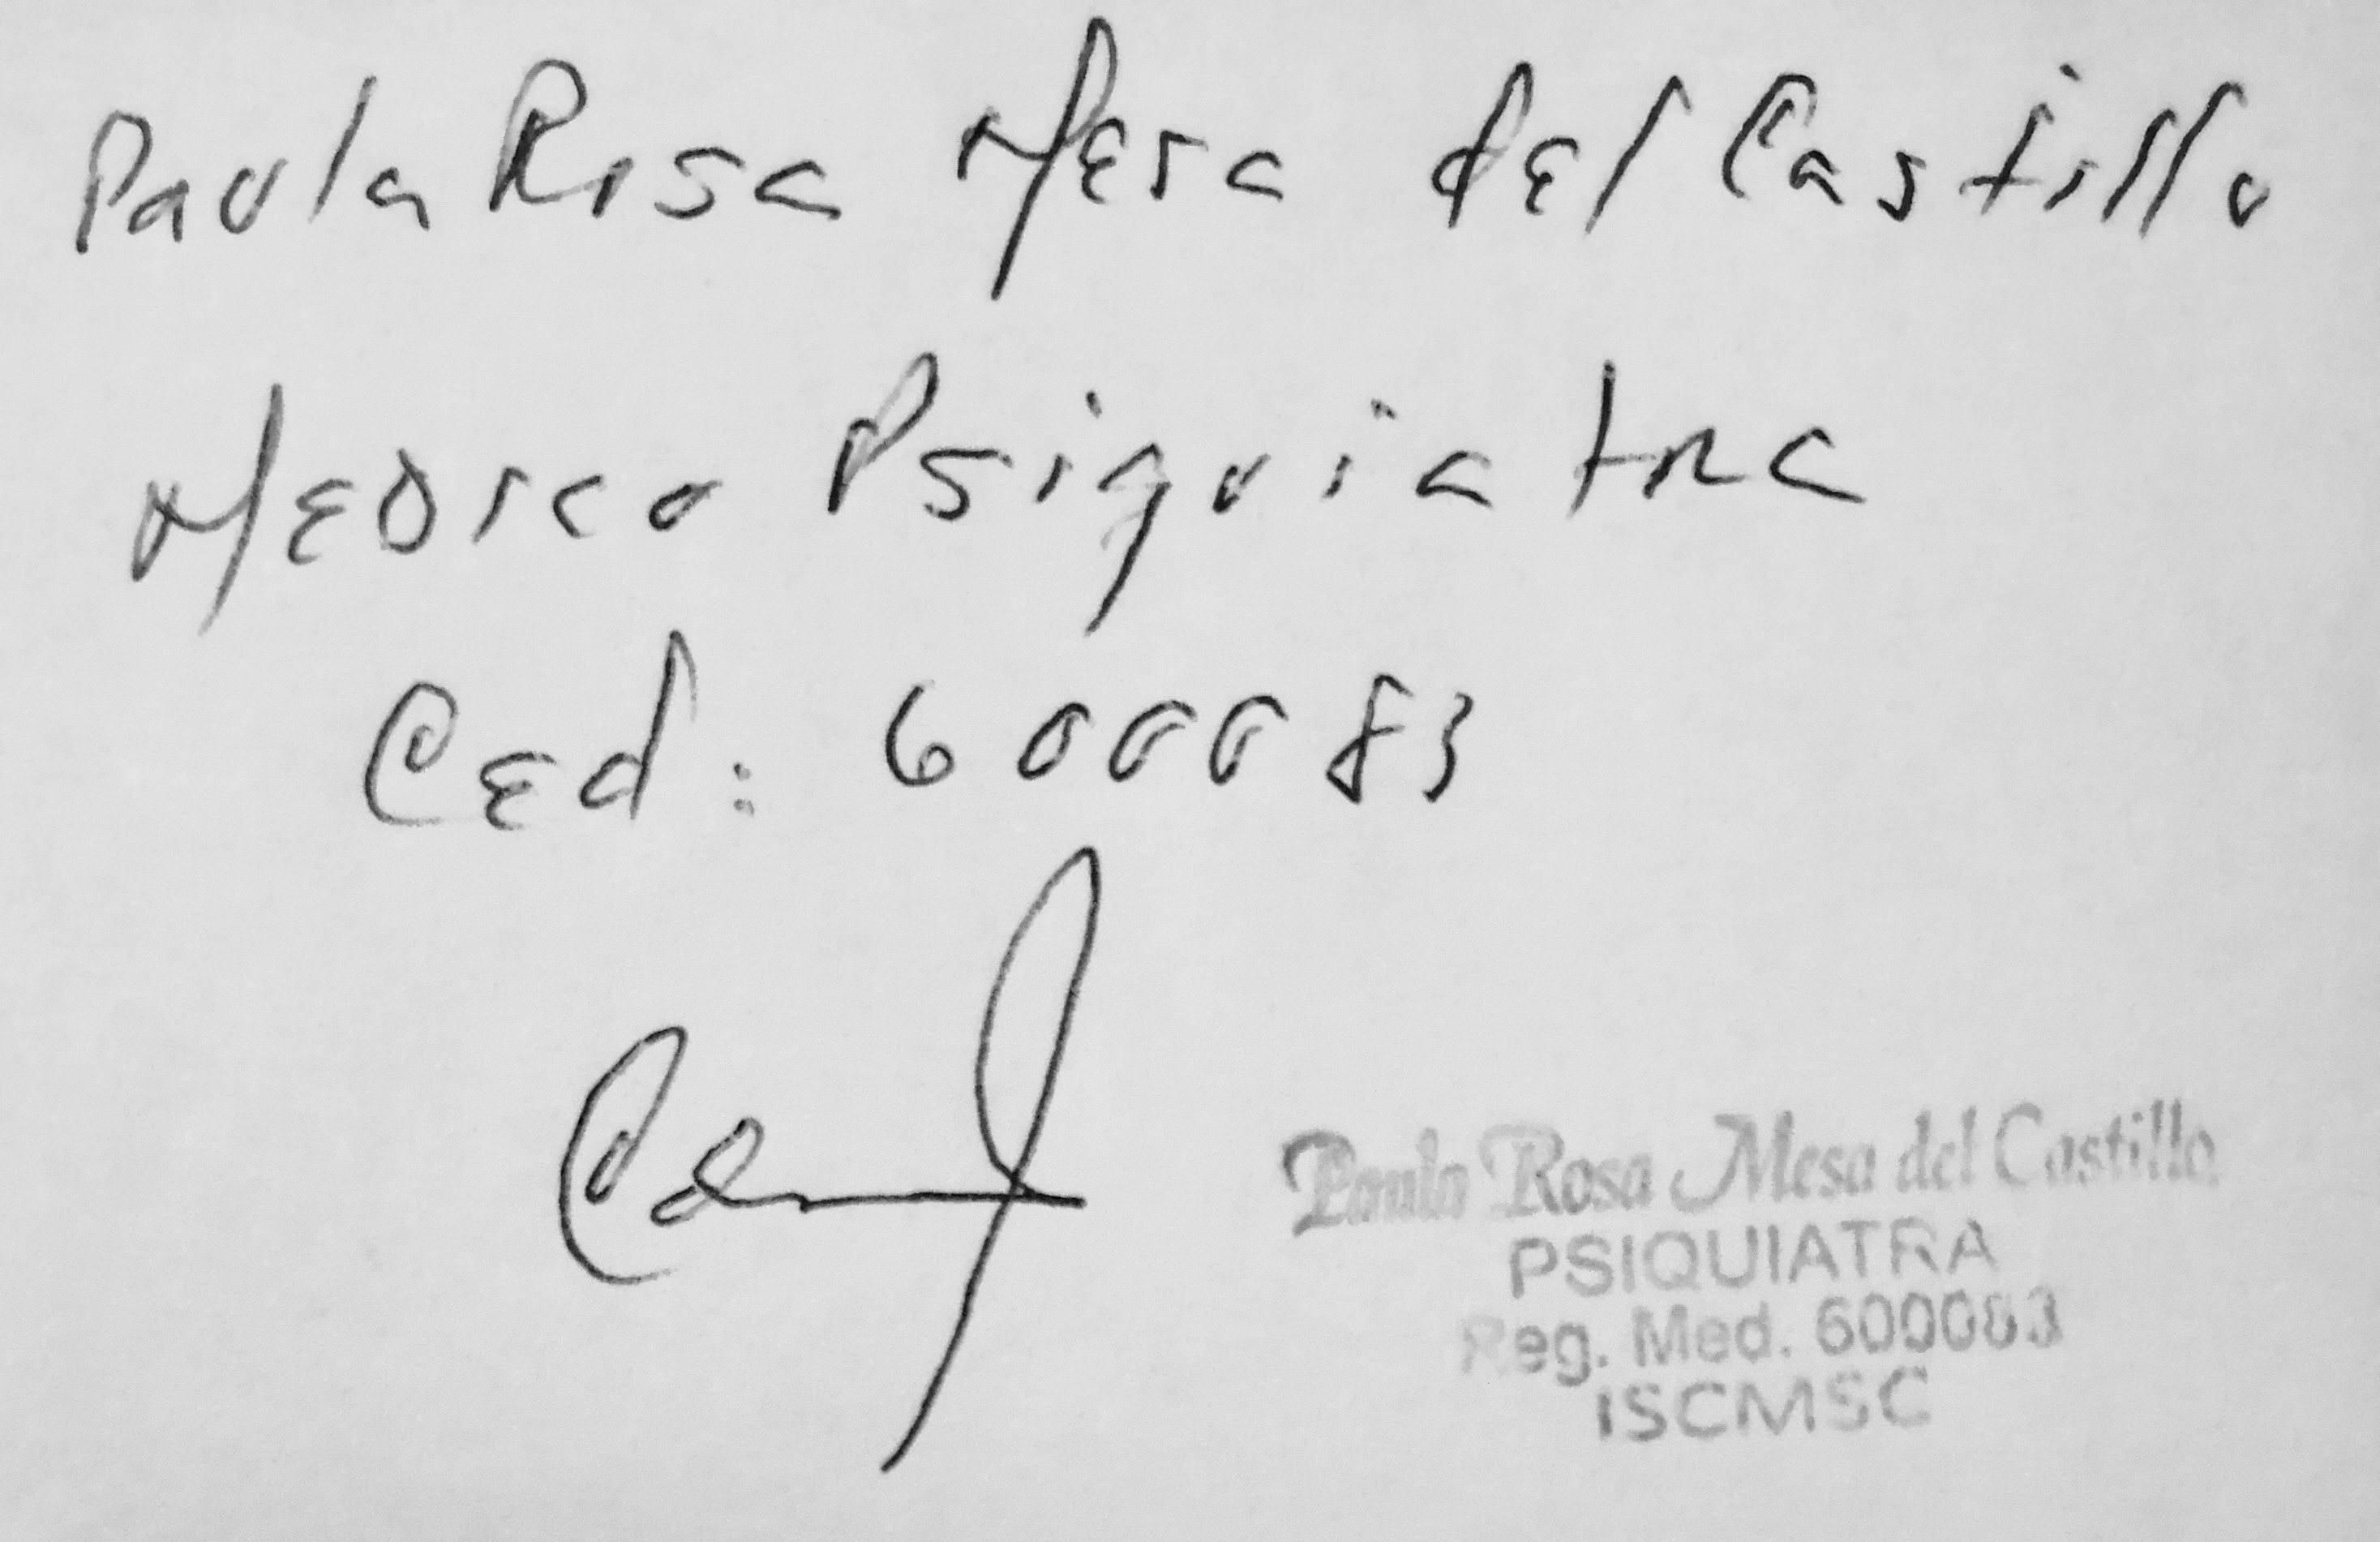 Paula Rosa Mesa del Castillo
Medico Psiquiatra
Ced: 600083
Paula Rosa Mesa del Castillo
PSIQUIATRA
Reg. Med. 600083
ISCMSC